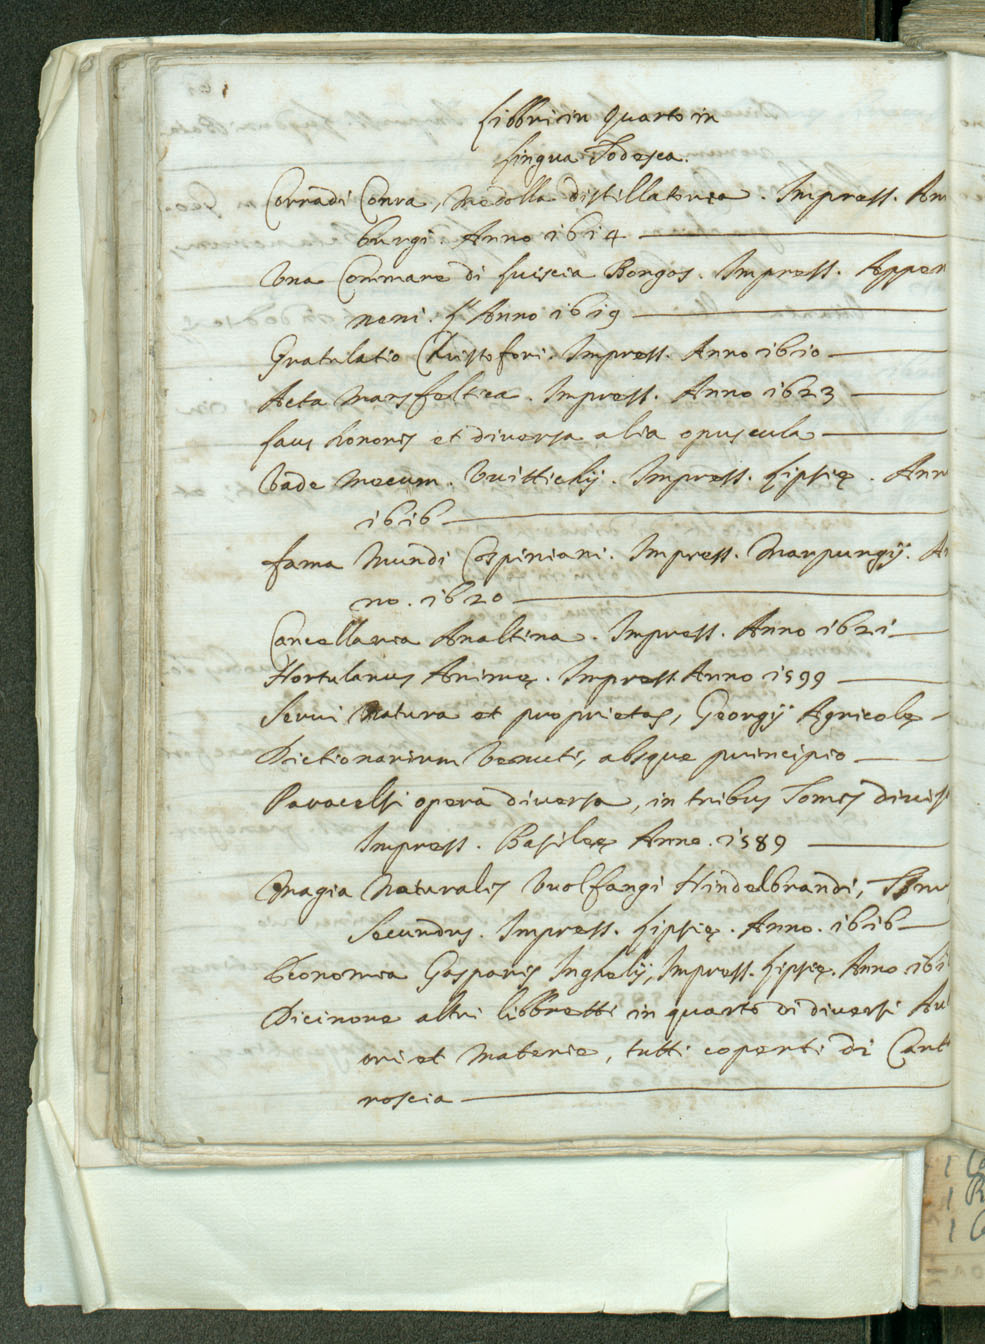 Libbri in quarto in
lingua Todesca.
Corradi Conra, Medolla distillatoria. Impress. Am
burgi. Anno 1614
Una Commare di Luiscia Borgos. Impress. Appen
neni. L'Anno 1619
Gratulatio Christofori. Impress. Anno 1610
Acta Mansfeltica. Impress. Anno 1623
Laus honoris et diversa alia opuscula
Vade Mecum. Vuittichij. Impress. Lipsię. Ann
1616
Fama Mundi Cospiniani. Impress. Marpurgij. An
no. 1620
Cancellaria Analtina. Impress. Anno 1621
Hortulanus Animę. Impress. Anno 1599
Serui Natura et proprietas, Georgij Agricolę
Dictionarium Venuti, absque principio
Paracelsi opera diversa, in tribus Tomis divis
Impress. Basileę Anno. 1589
Magia Naturalis Vuolfangi Hindelbrandi,
Secundus. Impress. Lipsię. Anno. 1616
Economia Gasparis Inghelij, Impress. Lipsię. Anno 161
Dicinove altri libbretti in quarto di diversi Au
ori et Materie, tutti coperti di Cart
roscia